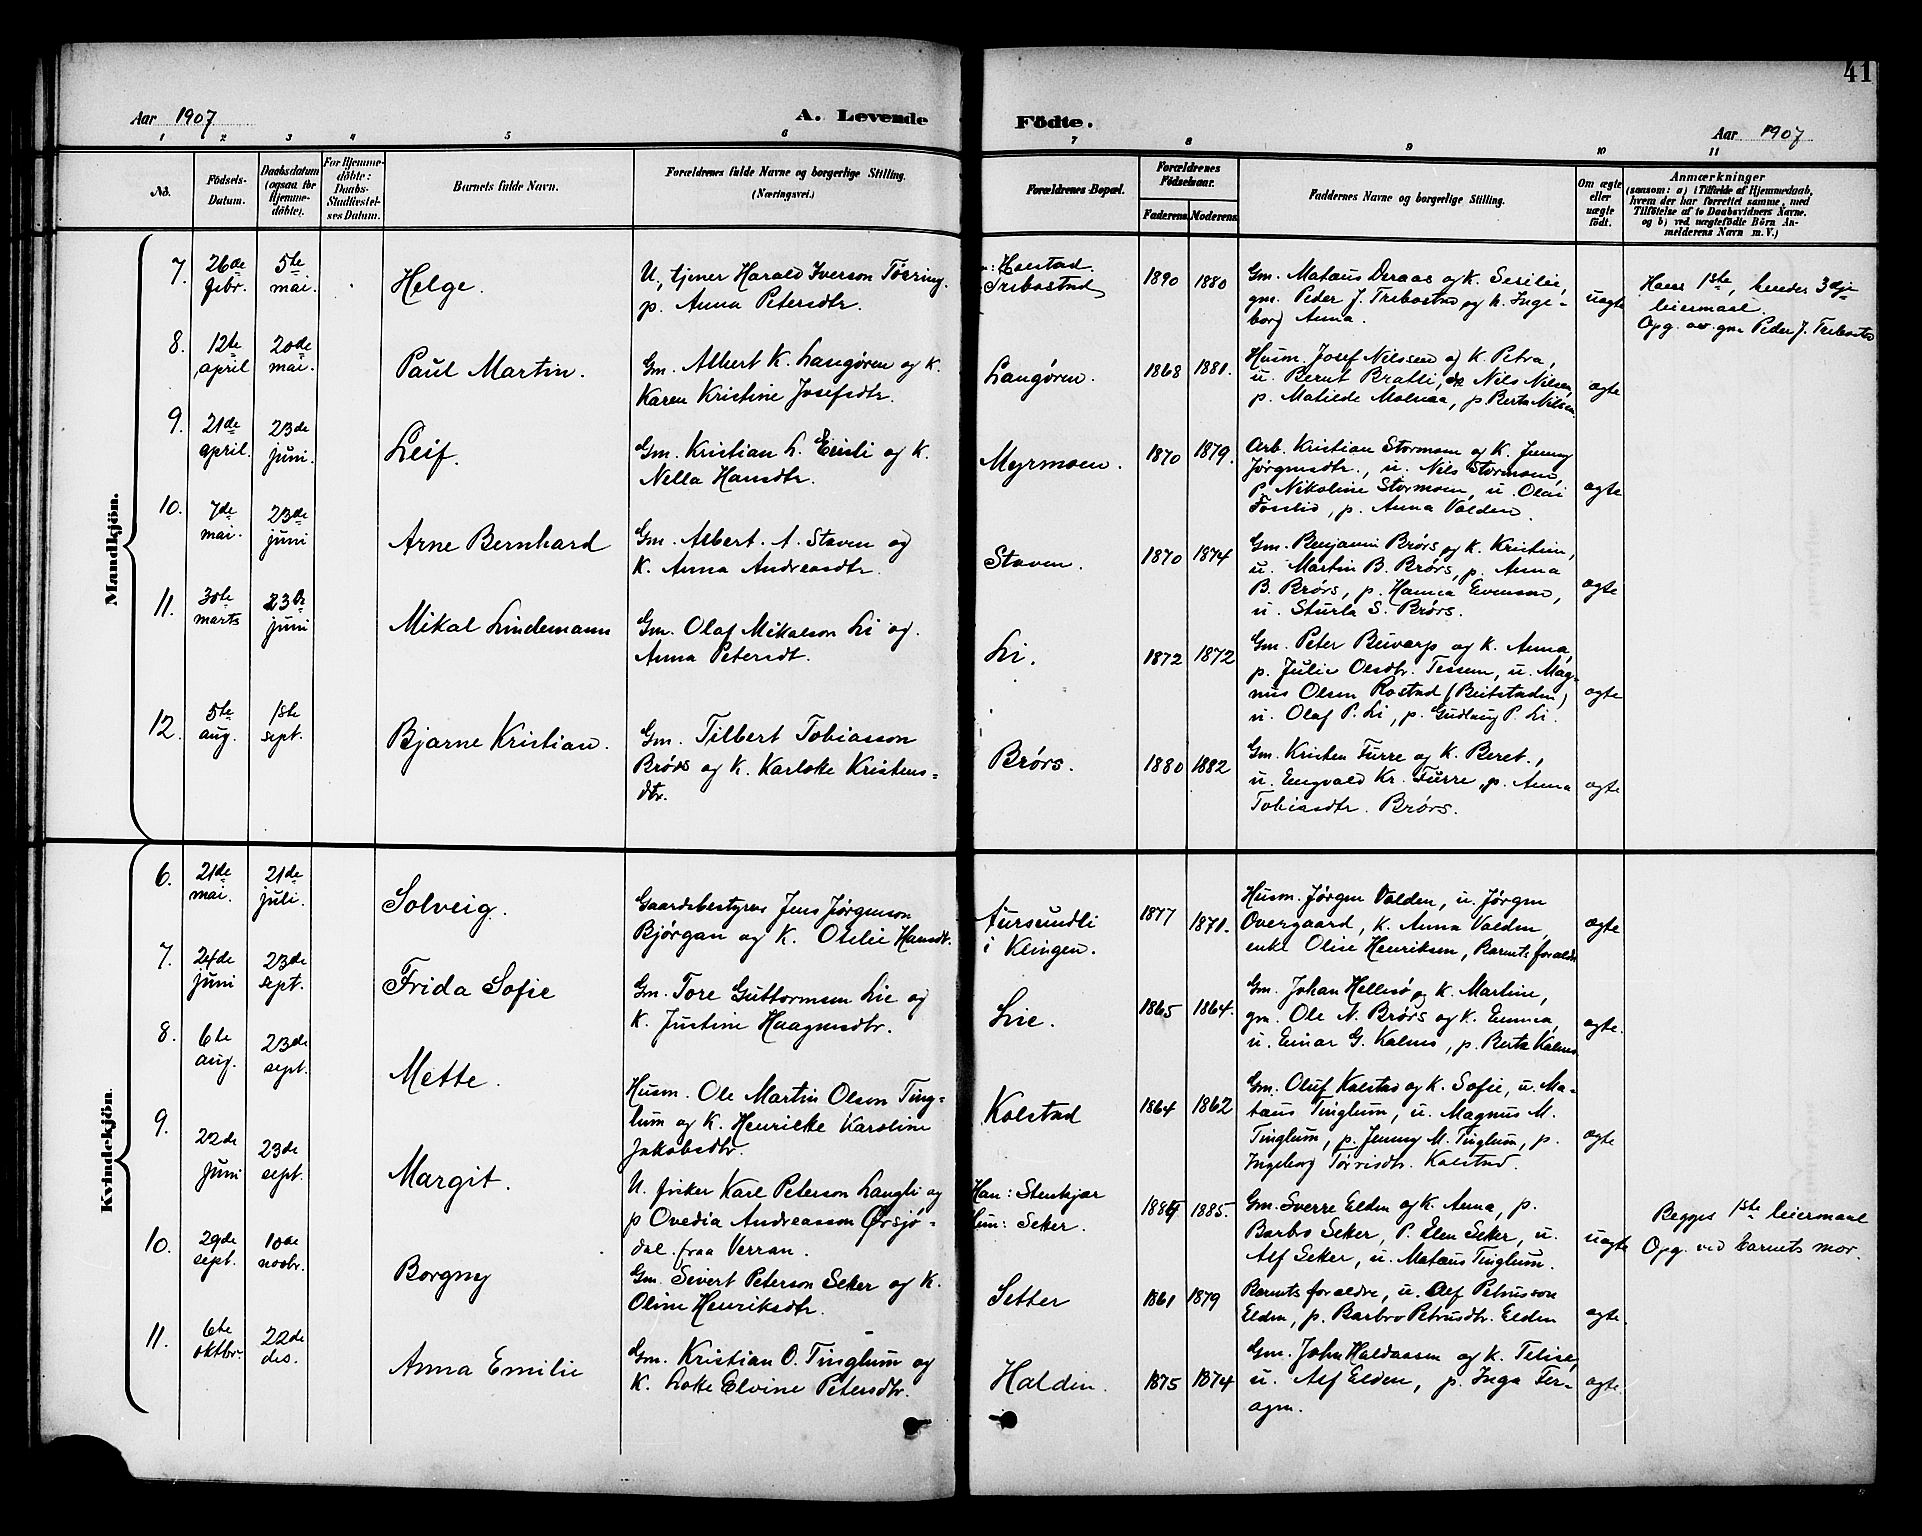 41
Aar 1907
A. Levende
Födte.
Aar 1907
1 2 3 4 5 6 7 8 9 10 11
No.
Födsels-
Datum.
Daabsdatum
(ogsaa for
Hjemme-
döbte).
For Hjemme-
döbte:
Daabs-
Stadfæstel-
ses Datum.
Barnets fulde Navn.
Forældrenes fulde Navne og borgerlige Stilling.
(Næringsvei.)
Forældrenes Bopæl.
Forældrenes
Födselsaar.
Faderens.
Moderens.
Faddernes Navne og borgerlige Stilling.
Om ægte
eller
uægte
födt.
Anmærkninger
(saasom: a) i Tilfælde af Hjemmedaab,
hvem der har forrettet samme, med
Tilföielse af to Daabsvidners Navne.
og b) ved uægtefödte Börn An-
melderens Navn m. V.)
Mandkjön.
7.
26de
febr.
5te
mai.
Helge.
U, tjener Harald Iverson Tøsring.
p. Anna Petersdtr.
Holstad.
Trebostad
1890 1880
Gm. Mataus Deraas og k. Sesilie,
gm. Peder J. Trebostad og k. Inge-
borg Anna.
uægte
Hans 1ste, hendes 3dje
leiermaal.
Opg. av gm Peder J. Trebostad
8.
12te
april
20de
mai.
Paul Martin.
Gm. Albert K. Langøren og k.
Karen Kristine Josefsdtr.
Langøren.
1868 1881.
Husm. Josef Nilssen og k. Petra,
u. Bernt Bratli, Nils Nilsen,
p. Matilde Molnaa, p. Berta Nilsen
ægte
9.
21de
april.
23de
juni.
Leif.
Gm. Kristian L. og k.
Nella Hansdtr.
Myrmoen.
1870 1879.
Arb. Kristian Stormoen og k. Jenny
Jørgensdtr., u. Nils Stormoen,
p. Nikoline Stormoen, u. Olai
Fosslid, p. Anna Valden.
ægte
10.
7de
mai.
23de
juni
Arne Bernhard
Gm. Albert A. Staven og
k. Anna Andreasdtr.
Staven.
1870 1874
Gm. Benjamin Brørs og k. Kristin,
u. Martin B. Brørs, p. Anna
B. Brørs, p. Hanna Evensen,
u. Sturla S. Brørs.
ægte
11.
30te
marts
23de
juni
Mikal Lindemann
Gm. Olaf Mikalson Li og.
Anna Petersdt.
Li.
1872 1872
Gm. Peter Buvarp og k. Anna,
p. Julie Olsdtr. Tessem, u. Mag-
nus Olsen Rostad (Beitstaden)
u. Olaf P. Li, p. Gudlaug P. Li.
ægte
12.
5te
aug.
1ste
sept.
Bjarne Kristian.
Gm. Tilbert Tobiasson
Brørs og k. Karlotte Kristens-
dtr.
Brørs.
1880 1882
Gm. Kristen Furre og k. Beret.,
u. Engvald Kr. Furre, p. Anna
Tobiasdtr. Brørs.
ægte
Kvindekjön.
6.
21de
mai.
21de
juli.
Solveig.
Gaardsbestyrer Jens Jørgenson
Bjørgan og k. Otelie Hansdt.
Aursundli
i Klingen.
1877 1871.
Husm. Jørgen Valden, u. Jørgen
Overgaard, k. Anna Valden,
enke Oline Henriksen, Barnets forældr
ægte
7.
24de
juni
23de
sept.
Frida Sofie
Gm. Tore Guttormsen Lie og
k. Justine Haagensdtr.
Lie.
1865 1864.
Gm. Johan Hellesø og k. Martine,
gm. Ole N. Brørs og k. Emma,
u. Einar G. Kalnes, p. Berta Kalnes
ægte.
8.
6te
aug.
23de
sept.
Mette.
Husm. Ole Martin Olson Ting-
lum og k. Henrikke Karoline
Jakobsdtr.
Kolstad
1864 1862
Gm. Oluf Kolstad og k. Sofie, u. Ma-
taus Tinglum, u. Magnus M.
Tinglum, p. Jenny M. Tinglum, p.
Ingeborg Tørrisdtr. Kolstad.
ægte
9.
22de
juni
23de
sept.
Margit.
U. fisker Karl Peterson Langli og
p Ovedia Andreasson Ørsjø-
dal. fraa Verran.
Han: Stenkjær
Hun: Seker.
1884 1885.
Gm. Sverre Elden og k. Anna, p.
Barbo Seker, P. Elen Seker, u.
Alf Seker, u. Mataus Tinglum.
uægte
Begges 1ste leiermaal
Opg. ved barnets mor.
10.
29de
sept.
10de
novbr.
Borgny
Gm. Sivert Peterson Seker og k.
Oline Henriksdtr.
Setter
1861 1879
Barnets forældre, u. Alf Petrusson
Elden, p. Barbro Petrusdtr. Elden
ægte.
11.
6te
oktbr.
22de
des.
Anna Emilie
Gm. Kristian O. Tinglum og
k. Lotte Elvine Petersdtr.
Haldin.
1875 1874
Gm. John Haldaasen og k. Telise,
u. Alf Elden, p. Inga Fer-
agen.
ægte.